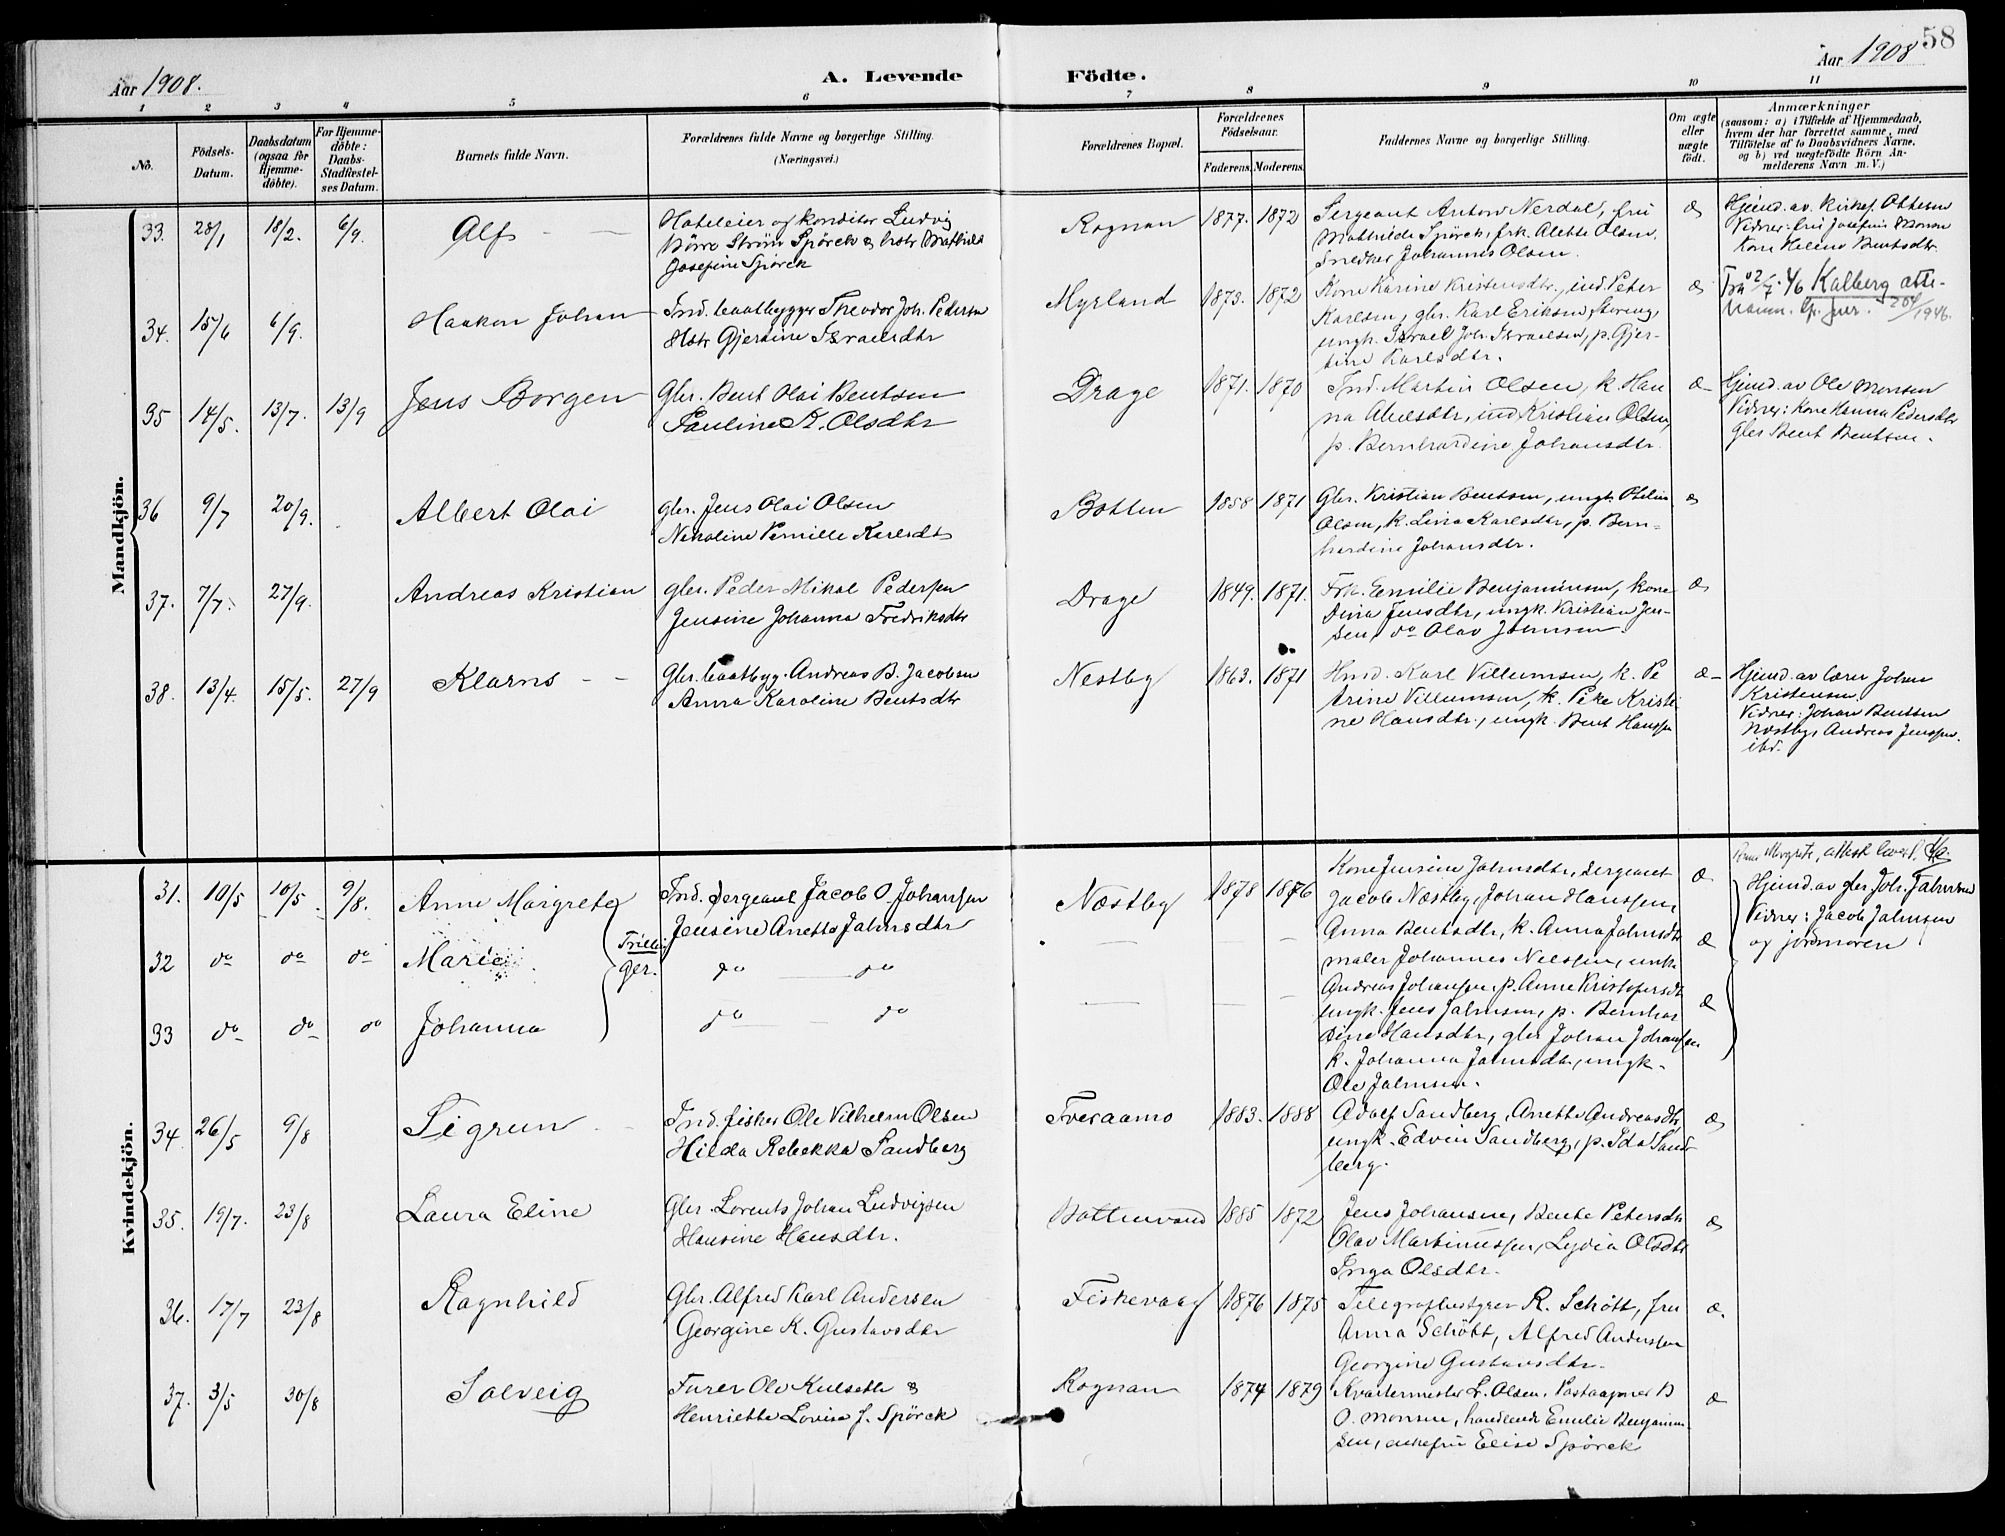 58
Aar 1908.
A. Levende
Födte.
Aar 1908
1 2 3 4 5 6 7 8 9 10 11
No.
Födsels-
Datum.
Daabsdatum
(ogsaa for
Hjemme-
döbte).
For Hjemme-
döbte:
Daabs-
Stadfestel-
ses Datum.
Barnets fulde Navn.
Forældrenes fulde Navne og borgerlige Stilling.
(Næringsvei.)
Forældrenes Bopæl.
Forældrenes
Födselsaar.
Faderens. Moderens.
Faddernes Navne og borgerlige Stilling.
Om ægte
eller
uægte
födt.
Anmærkninger
(saasom: a) i Tilfælde af Hjemmedaab,
hvem der har forrettet samme, med
Tilföielse af to Daabsvidners Navne,
og b) ved uægtefödte Börn An-
melderens Navn m. V.)
Mandkjön.
33. 28/1 18/2. 6/9. Alf
Hoteleier og konditor Ludvig
Börre Ström Spörck & hstr Mathilde
Josefine Spörck
Rognan 1877. 1872
Sergeant Anton Nerdal, fru
Mathilde Spörck, frk. Alette Olsen,
Snedker Johannes Olsen.
æ
Hjemd. av. Kirkes. Ottesen
Vidner: fru Josefine Monsen
Kone Helene Bentsdtr
34. 15/6 6/9. Haakon Johan
Ind. baatbygger Theodor Joh. Pedersen
Hstr Gjertine Israelsdtr
Myrland 1873. 1872
Kone Karine Kristensdtr., ind. Peter
Karlsen, gbr. Karl Eriksen, Storeng,
ungk. Israel Joh. Israelsen, p. Gjer-
tine Karlsdtr.
æ
Fra 2/7 46 Kalberg ette-
navn. Cfr. jnr. 204/1946.
35 14/5. 13/7. 13/9 Jens Borgen
Gbr. Bent Olai Bentsen
Pauline K. Olsdtr
Drage 1871. 1870
Ind. Martin Olsen, k. Han
na Abelsdtr, ind Kristian Olsen,
p. Bernhardine Johansdtr.
æ
Hjemd. av Ole Monsen
Vidner: Kone Hanna Pedersdtr
Gbr Bent Bentsen.
36 9/7 20/9. Albert Olai
gbr. Jens Olai Olsen
Nikoline Pernille Karlsdtr
Botten 1858 1871
Gbr. Kristian Bentsen, ungk. Otelius
Olsen, k. Lina Karlsdtr, p. Bern-
hardine Johansdtr.
æ
37. 7/7. 27/9. Andreas Kristian
gbr. Peder Mikal Pedersen
Jensine Johanna Fredriksdtr
Drage 1849. 1871.
Frk. Emilie Benjaminsen, kone
Dina Jensdtr, ungk. Kristian Jen-
sen, do Olav Johnsen.
æ
38. 13/4. 15/5. 27/9 Klarns
Gbr. baatbyg. Andreas B. Jacobsen
Anna Karoline Bentsdtr
Nestby 1863. 1871
Hmd. Karl Villumsen, k. Pe
trine Villumsen, k. Pike Kristi
ne Hansdtr., ungk. Bent Hanssen
æ
Hjemd. av lærer Johan
Kristensen.
Vidner: Johan Bentsen
Næstby, Andreas Jenssen
ibd.
Kvindekjön.
31. 10/5 10/5. 9/8. Anne Margrete
Ind. Sergeant Jacob O. Johansen
Jensine Anette Jahnsdtr
Næstby 1878 1876
32 do do do Marie
Trillin-
ger.
do do
33 do do do Johanna
do do
Kone Jensine Jahnsdtr, Sergeant
Jacob Næstby, Johan Hanssen,
Anna Bentsdtr, k. Anna Jahnsdtr
maler Johannes Nelssen, ungk.
Andreas Johansen, p. Anne Kristofersdtr
ungk. Jens Jahnsen, p. Bernhar
dine Hansdtr, gbr Johan Johansen
k. Johanna Jahnsdtr, ungk.
Ole Jahnsen.
æ
æ
æ
Anne Margrete, attest
Hjemd. av gbr Joh. Jahnsen
Vidner: Jacob Jahnsen
og jordmoren
34. 26/5 9/8 Sigrun
Ind. fisker Ole Vilhelm Olsen
Hilda Rebekka Sandberg
Tveraamo 1883. 1888
Adolf Sandberg, Anette Andreasdtr,
ungk. Edvin Sandberg, p. Ida Sand-
berg.
æ
35. 19/7. 23/8 Laura Eline
Gbr. Lorents Johan Ludvigsen
Hansine Hansdtr.
Bottenvand 1885 1872
Jens Johansen, Bente Petersdtr
Olav Martinussen, Lydia Olsdtr
Inga Olsdtr.
æ
36. 17/7 23/8 Ragnhild
Gbr. Alfred Karl Andersen
Georgine K. Gustavsdtr
Fiskevaag 1876 1875
Telegrafbestyrer R. Schött, fru
Anna Schött, Alfred Andersen
Georgine Gustavsdtr.
æ.
37. 3/5 30/8 Solveig
Furer Olv Kulseth &
Henriette Lovise J. Spörck
Rognan 1874 1879
Kvartermester L. Olsen, Postaapner B
O. Monsen, handlende Emilie Benjamin
sen, enkefru Elise Spörck
æ